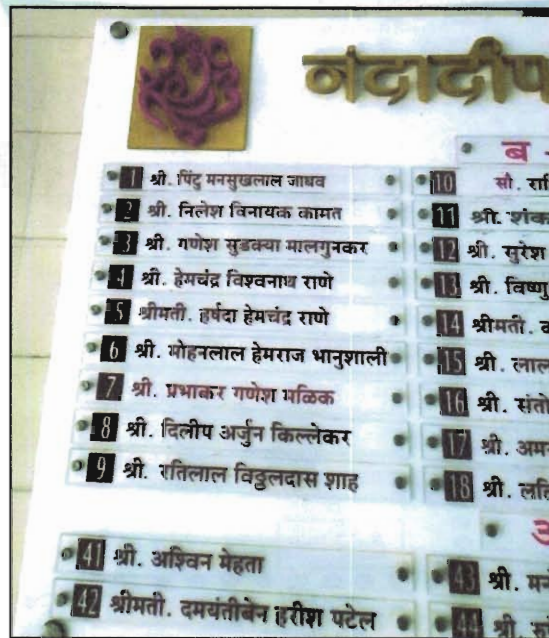 नंदादीप
ब
1 श्री. पिंटु मनसुखलाल जाधव
2 श्री. निलेश विनायक कामत
3 श्री. गणेश सुडक्या मालगुनकर
4 श्री. हेमचंद्र विश्वनाथ राणे
5 श्रीमती. हर्षदा हेमचंद्र राणे
6 श्री. मोहनलाल हेमराज भानुशाली
7 श्री. प्रभाकर गणेश मळिक
8 श्री. दिलीप अर्जुन किल्लेकर
9 श्री. रतिलाल विठ्ठलदास शाह
10 सौ.
11 श्री.
12 श्री. सुरेश
13 श्री. विष्णु
14 श्रीमती.
15 श्री.
16 श्री.
17 श्री.
18 श्री.
41 श्री. अश्विन मेहता
42 श्रीमती. दमयंतीबेन हरीश पटेल
43 श्री.
44 श्री.